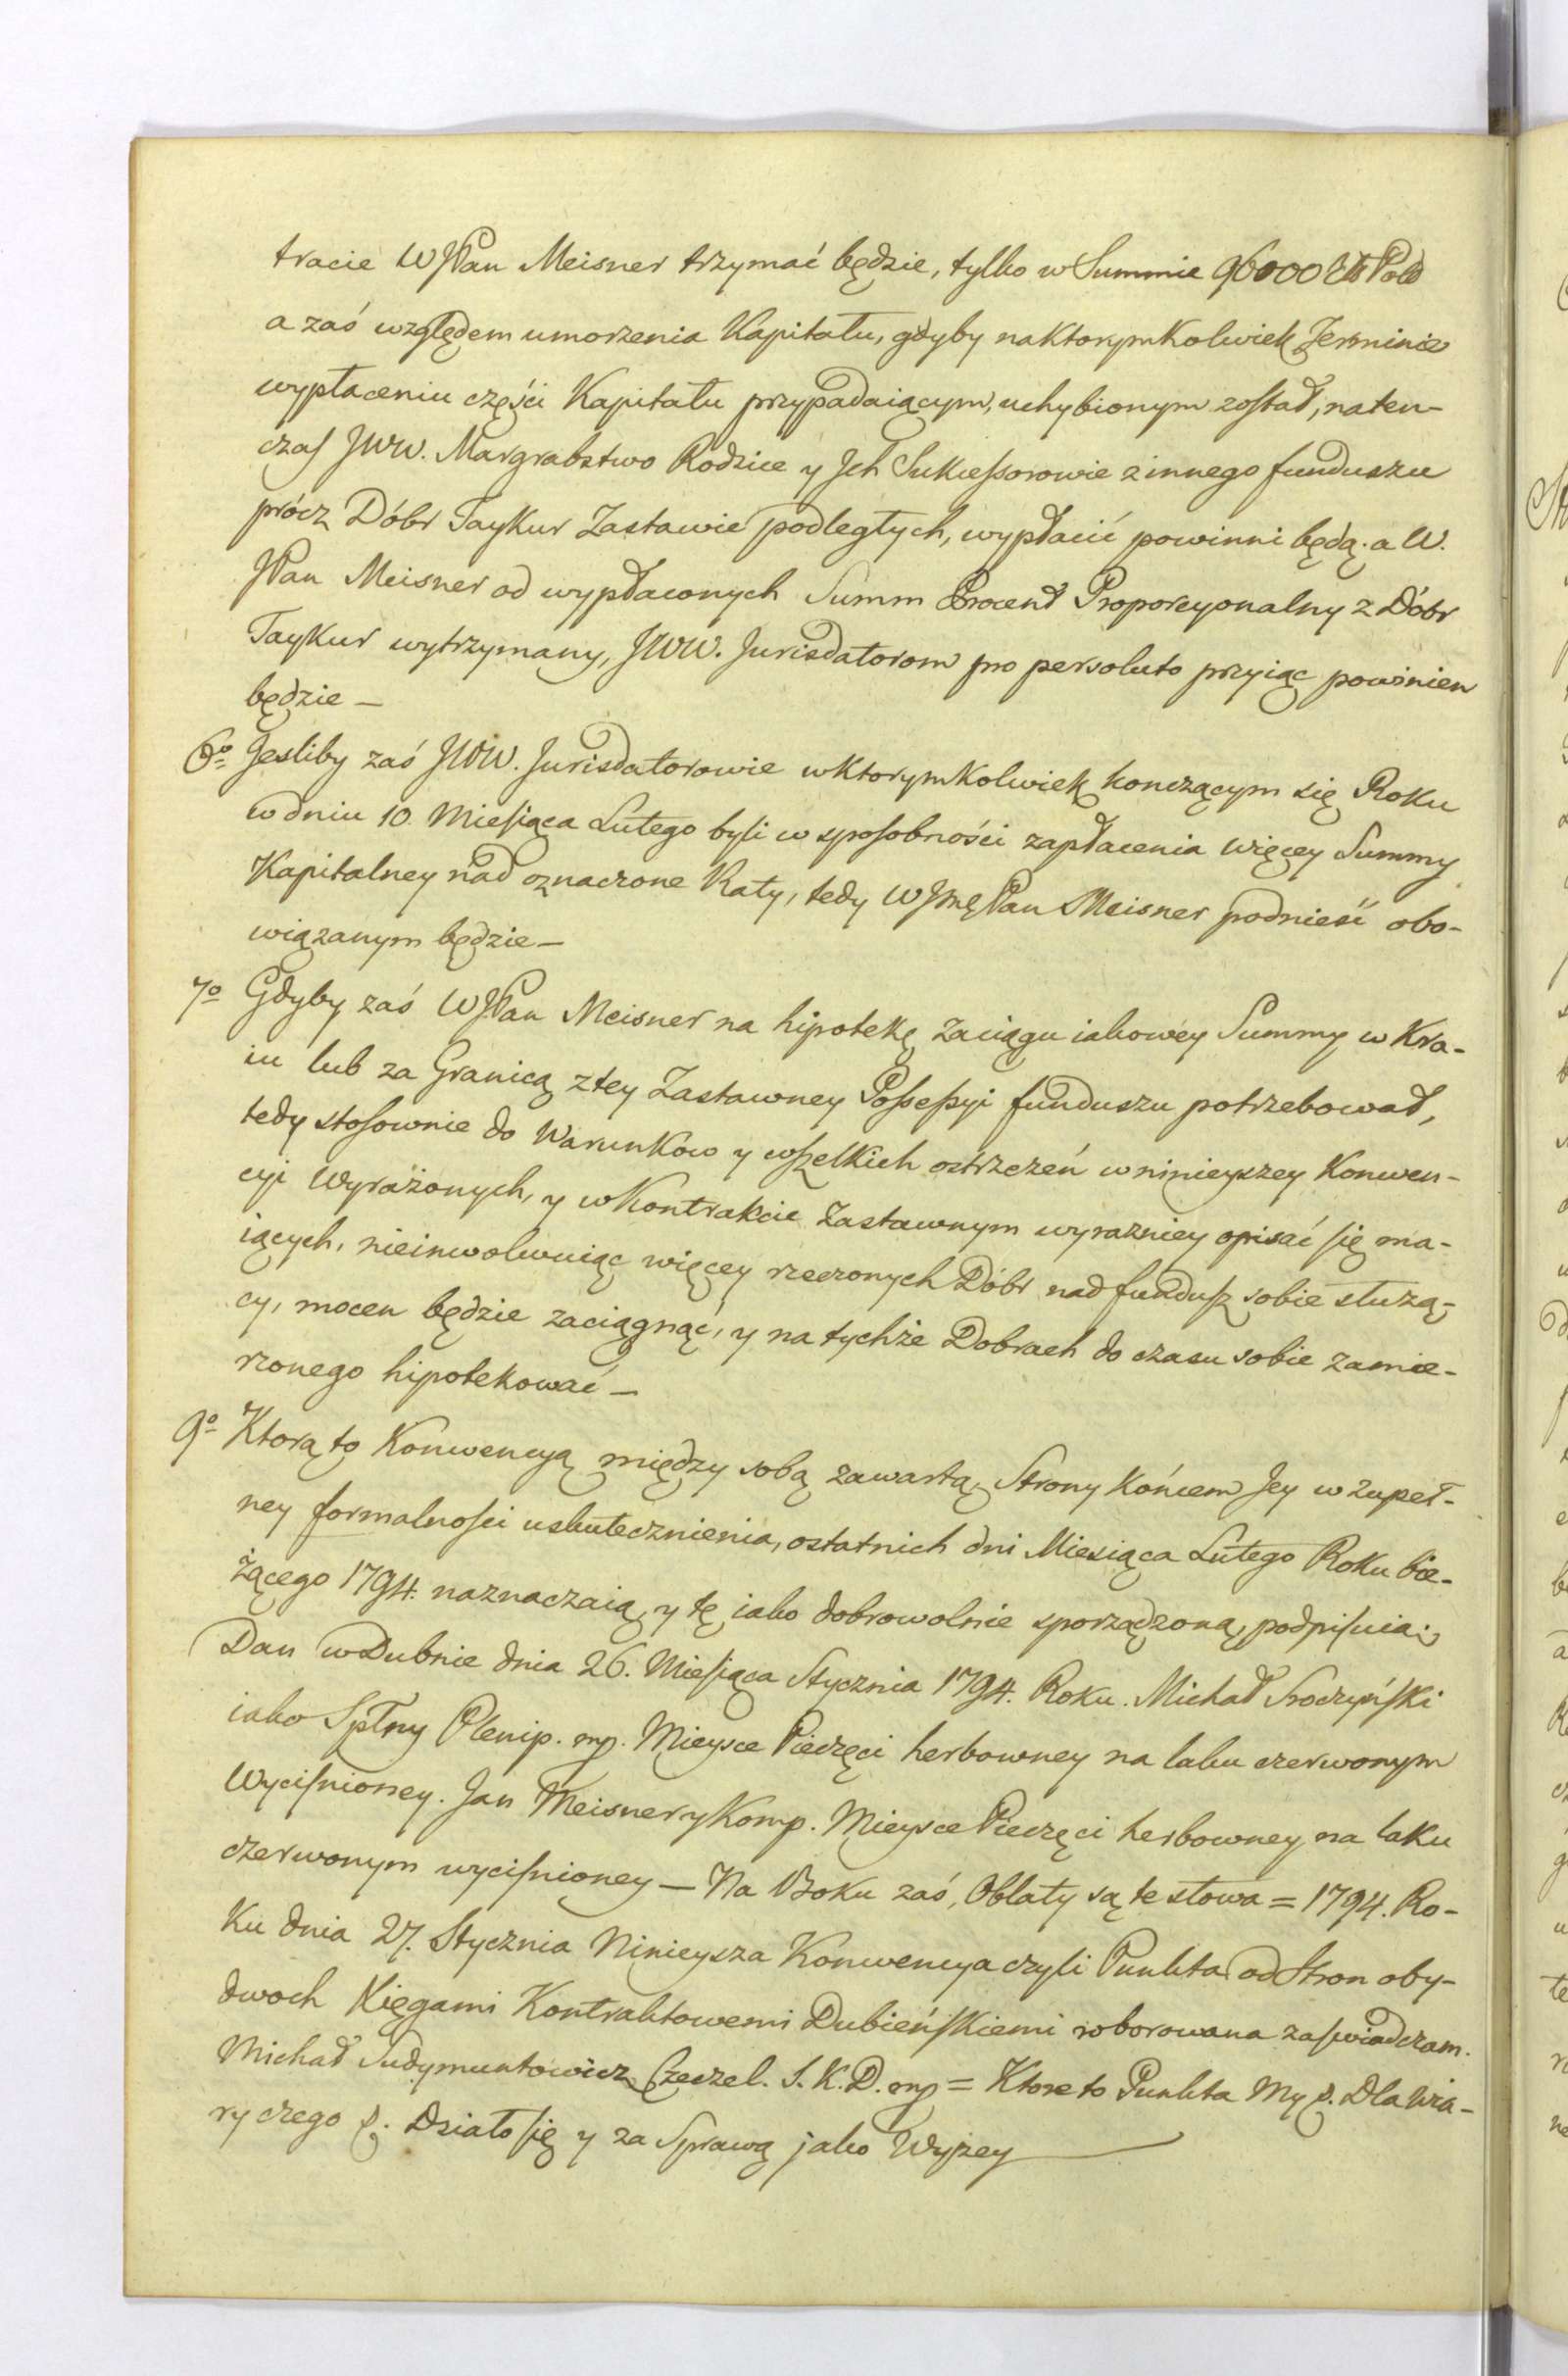 tracie WJPan Meisner trzymać będzie, tylko w Summie 96000 Zł Pols
a zaś względem umorzenia Kapitału, gdyby naktorymkolwiek Terminie
wypłaceniu części Kapitału przypadaiącym, uchybionym został, naten-
czas JWW. Margrabstwo Rodzice y Jch Sukcessorowie z innego funduszu
prócz Dóbr Taykur Zastawie podległych, wypłacić powinni będą. a W.
JPan Meisner od wypłaconych Summ Procent Proporcyonalny z Dóbr
Taykur wytrzymany, JWW. Jurisdatorom pro persoluto przyiąc powinien
będzie —
6º Jesliby zaś JWW. Jurisdatorowie wktorymkolwiek konczącym się Roku
w dniu 10. Miesiąca Lutego byli w sposobności zapłacenia więcey Summy
Kapitalney nad oznaczone Raty, tedy WJmę Pan Meisner podnieść obo-
wiązanym będzie —
7º Gdyby zaś WJPan Meisner na hipotekę zaciągu iakowey Summy w Kra-
iu lub za Granicą z tey Zastawney Possessyi funduszu potrzebował,
tedy stosownie do Warunkow y wszelkich ostrzczeń w ninieyszey Konwen-
cyi Wyrażonych, y w Kontrakcie Zastawnym wyrazniey opisać się ma-
iących, nieinwolwuiąc więcey rzeczonych Dóbr nad fundusz sobie służą-
cy, mocen będzie zaciągnąć, y na tychże Dobrach do czasu sobie zamie-
rzonego hipotekować —
9º Ktorą to Konwencyą między sobą zawartą, Strony końcem Jey w zupeł-
ney formalności uskutecznienia, ostatnich dni Miesiąca Lutego Roku bie-
żącego 1794. naznaczaią, y tę iako dobrowolnie sporządzoną, podpisuią.
Dan w Dubnie dnia 26. Miesiąca Stycznia 1794. Roku. Michał Sroczyński
iako Spłny Plenip. mp. Mieysce Pieczęci herbowney na laku czerwonym
Wycisnioney. Jan Meisner y Komp. Mieysce Pieczęci herbowney na laku
czerwonym wycisnioney — Na Boku zaś, Oblaty są te słowa = 1794. Ro-
ku dnia 27. Stycznia Ninieysza Konwencya czyli Punkta od Stron oby-
dwoch Xięgami Kontraktowemi Dubieńskiemi roborowana zaswiadczam.
Michał Sudymuntowicz Czeczel. S. K. D. mp = Ktore to Punkta My p. Dla Wia-
ry czego p. Działo się y za Sprawą jako Wyżey